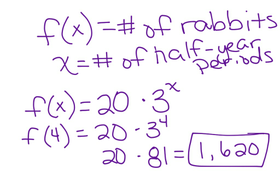 f(x) = # of rabbits
x = # of half-year periods
f(x) = 20 · 3^x
f(4) = 20 · 3^4
20 · 81 = 1,620